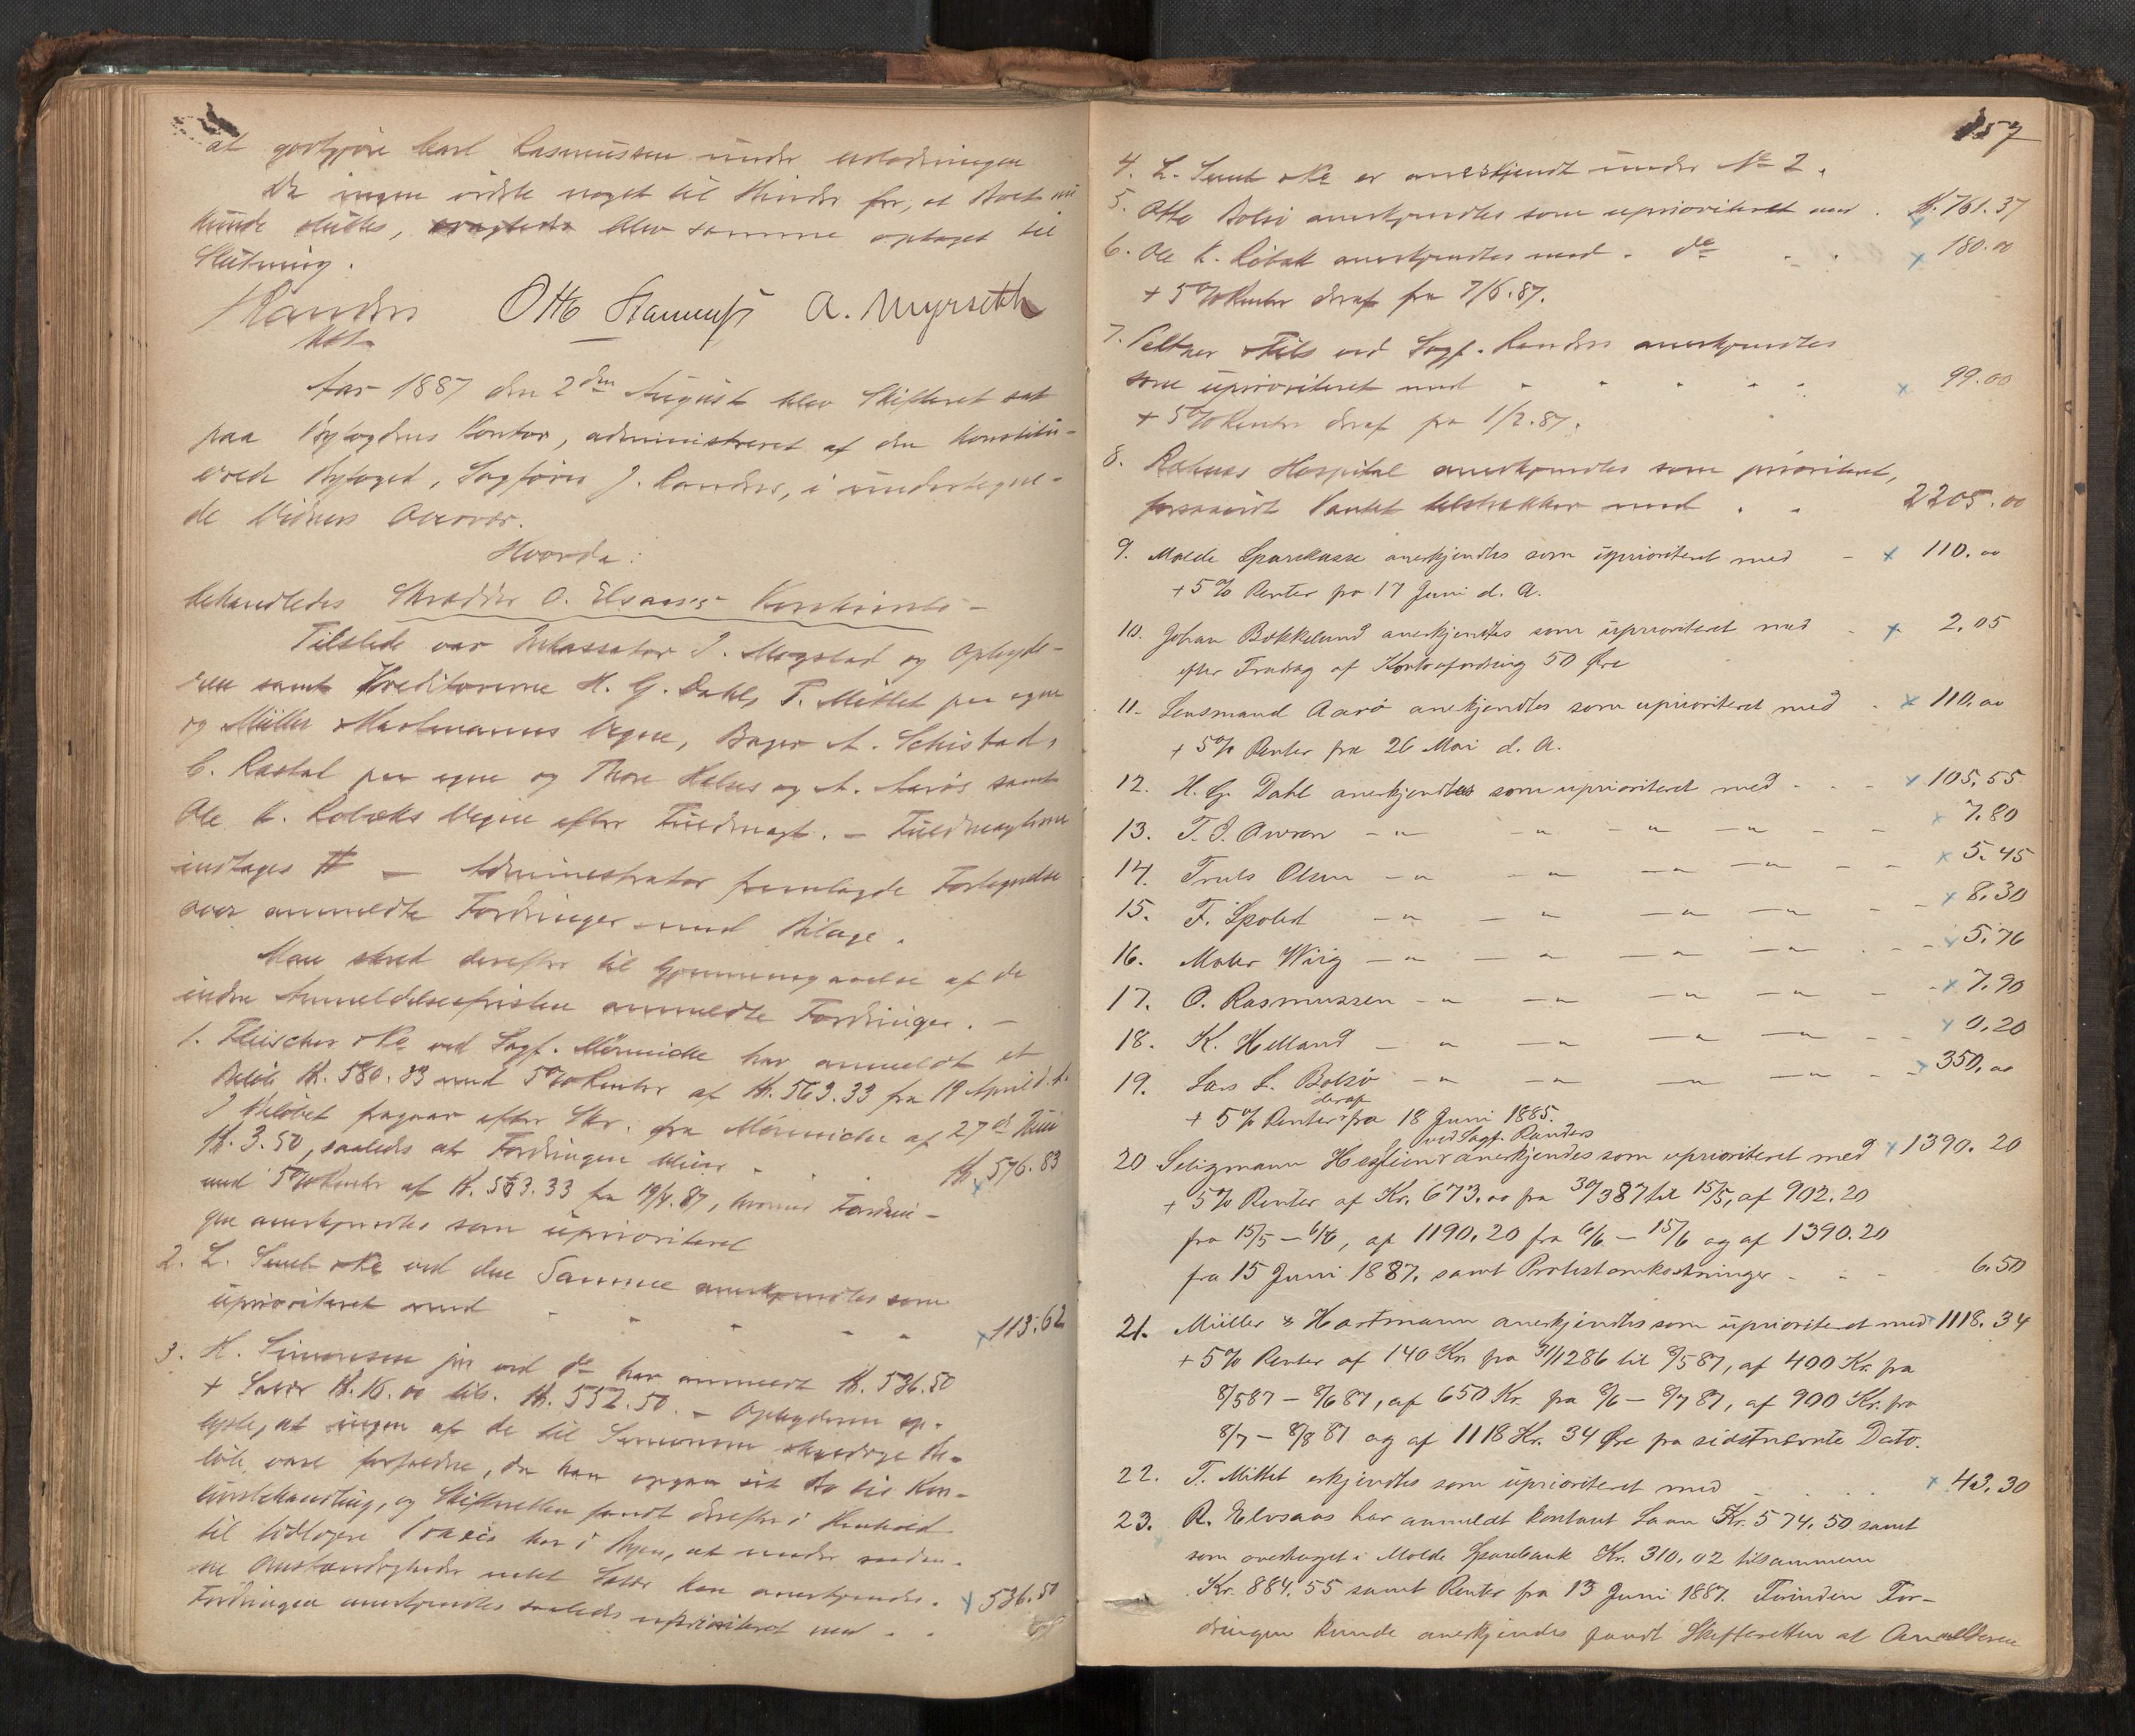 at godtgjøre Carl Rasmussen under udlodningen
Da ingen vidste noget til Hinder for, at Boet nu
kunde sluttes, blev samme optaget til
Slutning.
Randers Otto A. Myrseth
Kst.
Aar 1887 den 2den August blev Skifteret sat
paa Byfogdens Kontor, administreret af den Konstitu-
erede Byfoged, Sagfører J. Randers, i undertegne-
de Vidners Overvær.
Hvorda:
behandledes Skrædder O. Elvsaas's Konkursbo –
Tilstede var Inkassator J. Mogstad og Opbyde-
ren samt Kreditorerne H. G. Dahl, T. Mittet paa egne
og Müller & Hartmanns Vegne, Bager A. Schistad,
C. Rastad paa egne og Thore Helses og A. Aarøs samt
Ole K. Røbæks Vegne efter Fuldmagt. – Fuldmagterne
indtages – Administrator fremlagde Fortegnelse
over anmeldte Fordringer med Bilage.
Man skred derefter til Gjennemgaaelse af de
inden Anmeldelsesfristen anmeldte Fordringer. –
1. Fleischer & Co ved Sagf. Mönniche har anmeldt et
Beløb Kr. 580.33 med 5% Renter af Kr. 563.33 fra 19 April d. A.
I Beløbet fragaar efter Skr. fra Mönniche af 27de Juni
Kr. 3.50, saaledes at Fordringen bliver Kr. 576.83
med 5% Renter af Kr. 563.33 fra 19/4.87, hvormed Fordrin-
gen anerkjendtes som uprioriteret
2. L. Sunt & Co ved den Samme anerkjendtes som
uprioriteret med x 113.62
3. H. Simonsen jun ved do har anmeldt Kr. 536.50
+ Salær Kr. 16.00 tils. Kr. 552.50. – Opbyderen op-
lyste, at ingen af de til Simonsen skyldige Be-
løb vare forfaldne, da han opgav sit Bo til Kon-
kursbehandling, og Skifteretten fandt derefter i Henhold
til tidligere Praxis her i Byen, at under saadan-
ne Omstændigheder intet Salær kan anerkjendes.
Fordringen anerkjendtes saaledes uprioriteret med x 536.50
157
4. L. Sunt & Co er anerkjendt under No 2.
5. Otto Bolsø anerkjendtes som uprioriteret med Kr. 761.37
6. Ole K. Røbæk anerkjendtes med do x 180.00
+ 5% Renter deraf fra 7/6.87.
7. Peltzer & Fils ved Sagf. Randers anerkjendtes
som uprioriteret med x 99.00
+ 5% Renter deraf fra 1/2.87.
8. Reknæs Hospital anerkjendtes som prioriteret,
forsaavidt Pantet tilstrækker med 2205.00
9. Molde Sparekasse anerkjendtes som uprioriteret med x 110.00
+ 5% Renter fra 17 Juni d. A.
10. Johan Bakkelund anerkjendtes som uprioriteret med x 2.05
efter Fradrag af Kontrafordring 50 Øre
11. Lensmand Aarø anerkjendtes som uprioriteret med x 110.00
+ 5% Renter fra 26 Mai d. A.
12. H. G. Dahl anerkjendtes som uprioriteret med x 105.55
13. T. J. Owren – " – " – " – " x 7.80
14. Truls Olsen – " – " – " – " x 5.45
15. F. Spolert – " – " – " – " x 8.30
16. Maler Wiig – " – " – " – " x 5.76
17. O. Rasmussen – " – " – " – " x 7.90
18. K. Helland – " – " – " – " x 0.20
19. Lars L. Bolsø – " – " – " – " x 350.00
+ 5% Renter deraf fra 18 Juni 1885.
ved Sagf. Randers
20 Seligmann Hesslein anerkjendes som uprioriteret med x 1390.20
+ 5% Renter af Kr. 673.00 fra 30/387 til 15/5, af 902.20
fra 15/5 – 6/6, af 1190.20 fra 6/6 – 15/6 og af 1390.20
fra 15 Juni 1887, samt Protestomkostninger 6.50
21. Müller & Hartmann anerkjendtes som uprioriteret med x 1118.34
+ 5% Renter af 140 Kr. fra 31/1286 til 8/587, af 400 Kr. fra
8/587 – 8/687, af 650 Kr. fra 8/6 – 8/787, af 900 Kr. fra
8/7 – 8/887 og af 1118 Kr. 34 Øre fra sidstnævnte Dato.
22. T. Mittet erkjendtes som uprioriteret med x 43.30
23. R. Elvsaas har anmeldt kontant Laan Kr. 574.50 samt
som overtaget i Molde Sparebank Kr. 310.02 tilsammen
Kr. 884.55 samt Renter fra 13 Juni 1887. Forinden For-
dringen kunde anerkjendes fandt Skifteretten at Anmelderen